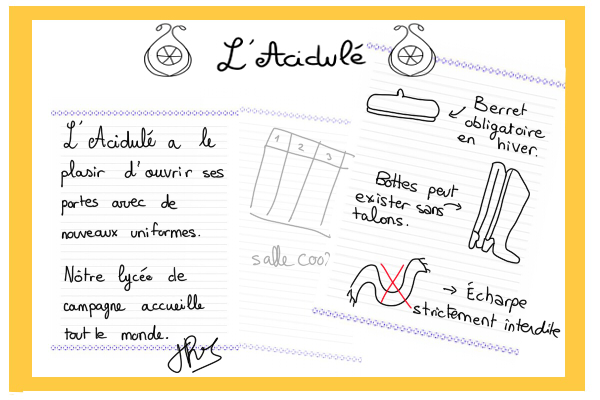 L'Acidulé
L'Acidulé a le
plasir d'ouvrir ses
portes avec de
nouveaux uniformes.
Nôtre lycée de
campagne accueille
tout le monde.
1 2 3
salle
Berret
obligatoire
en hiver.
Bottes peut
exister sans
talons.
Écharpe
strictement interdite